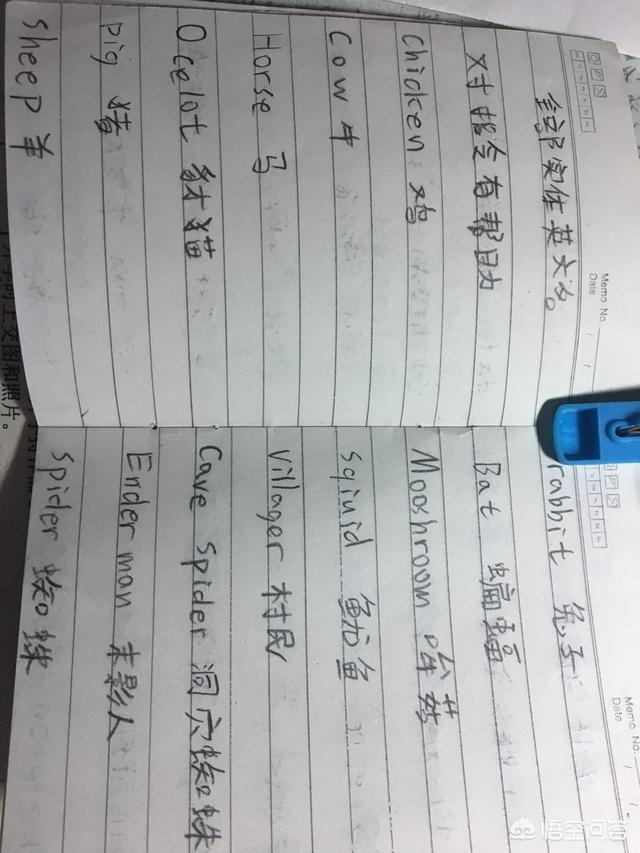 Memo No.
Date
全部实体英文名
对指令有帮助
Chicken 鸡
Cow 牛
Horse 马
Ocelot 豺猫
pig 猪
Sheep 羊
Memo No.
Date
rabbit 兔子
Bat 蝙蝠
Mooshroom 哞菇
Sqiuid 鱿鱼
Villager 村民
Cave Spider 洞穴蜘蛛
Ender man 末影人
Spider 蜘蛛
时上交图和照片。
悟空问答